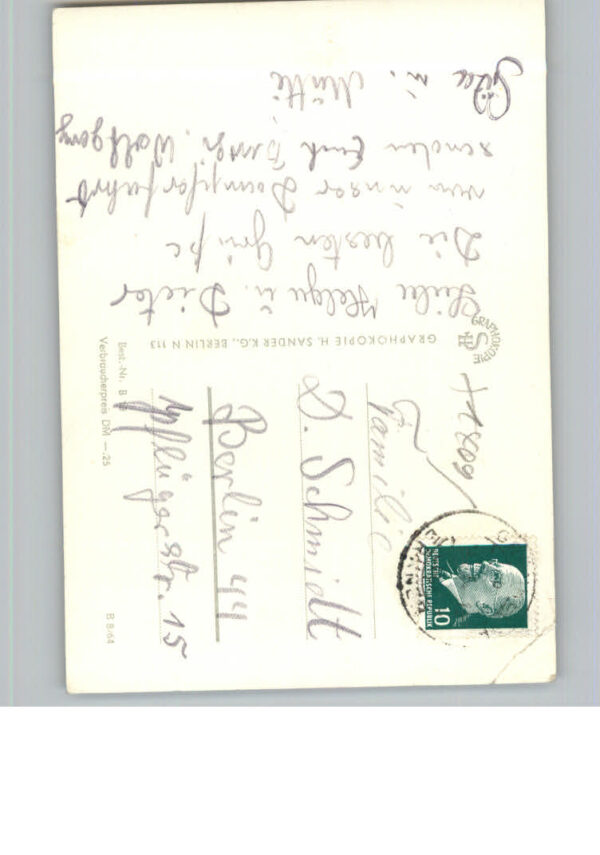 Liebe Helga u. Dieter
Die besten Grüße
von unser Dampferfahrt
senden Euch Wolfgang
u. Mutti
GRAPHOKOPIE H. SANDER K.G., BERLIN N 113
GRAPHOKOPIE
Familie
D. Schmidt
Berlin 44
Pflügerstr. 15
DEUTSCHE
DEMOKRATISCHE REPUBLIK
10
Best.-Nr. B
Verbraucherpreis DM —.25
B 8/64